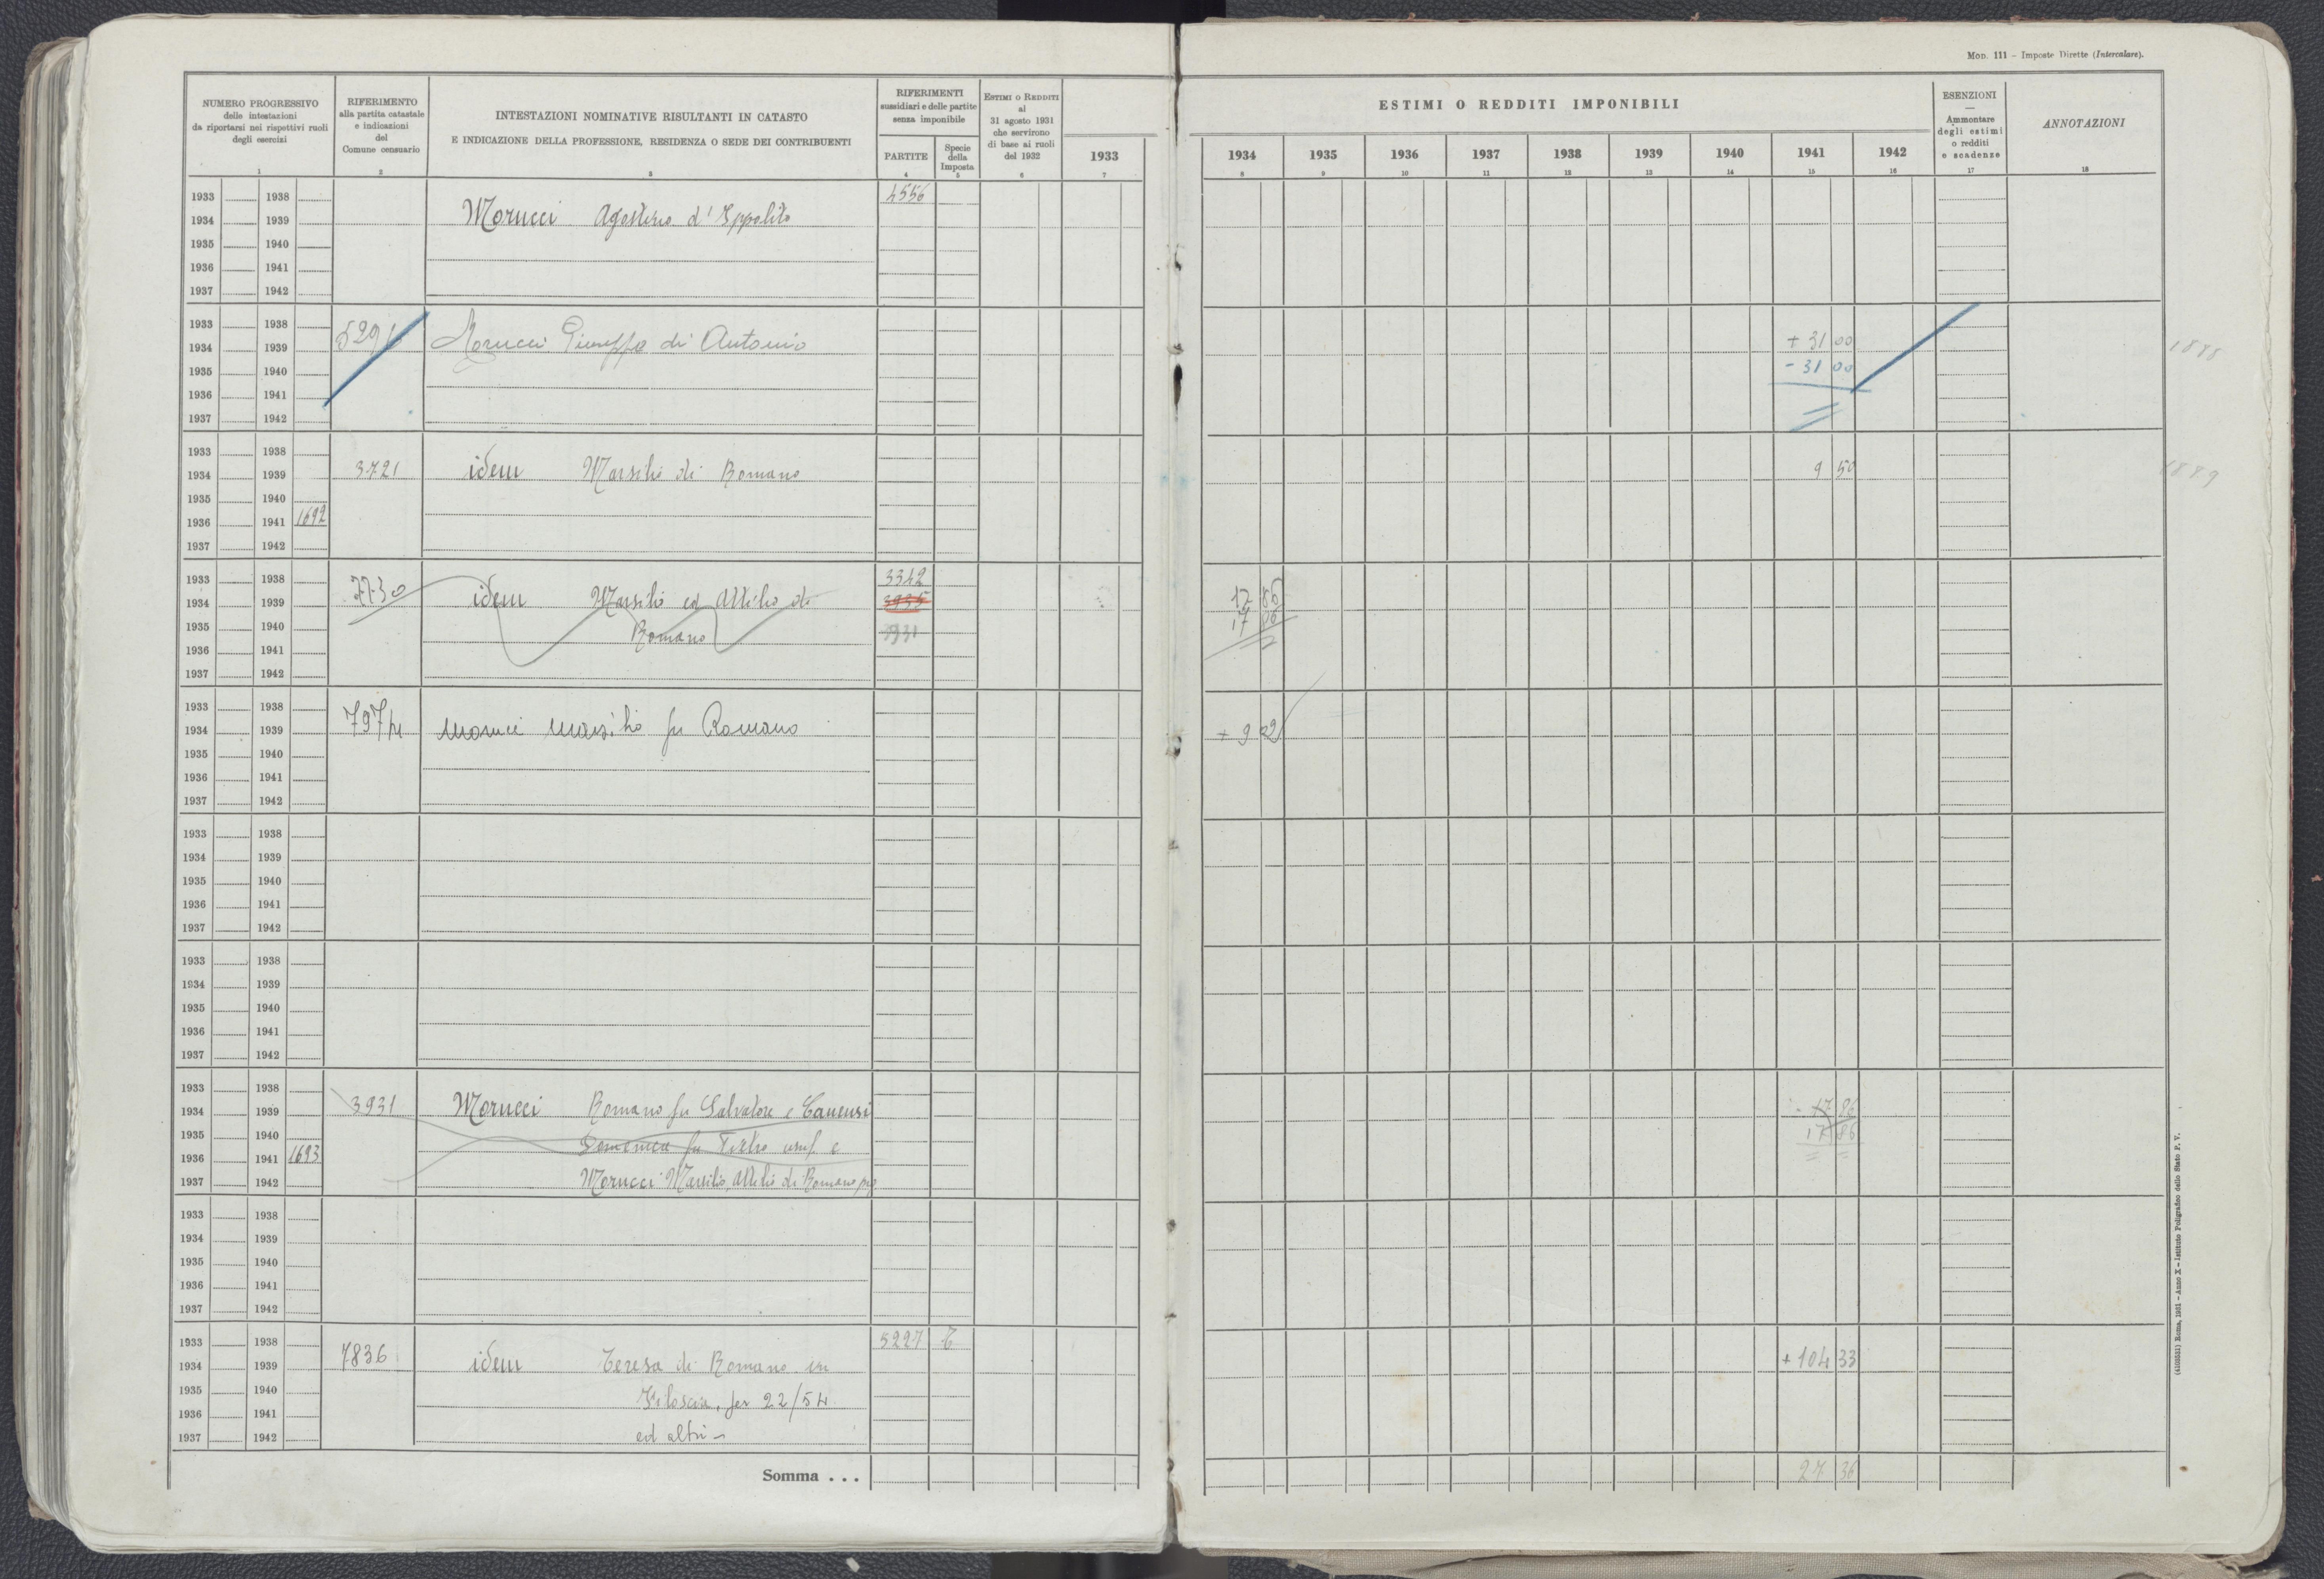 Mod. 111 – Imposte Dirette (Intercalare).
NUMERO PROGRESSIVO
delle intestazioni
da riportarsi nei rispottivi ruoli
degli esercizi
RIFERIMENTO
alla partita catastale
e indicazioni
del
Comune censuario
INTESTAZIONI NOMINATIVE RISULTANTI IN CATASTO
E INDICAZIONE DELLA PROFESSIONE, RESIDENZA O SEDE DEI CONTRIBUENTI
RIFERIMENTI
sussidiari e delle partite
senza imponibile
PARTITE
Specie
della
Imposta
ESTIMI O REDDITI
al
31 agosto 1931
che servirono
di base ai ruoli
del 1932
ESTIMI O REDDITI IMPONIBILI
1933 1934 1935 1936 1937 1938 1939 1940 1941 1942
ESENZIONI
—
Ammontare
degli estimi
o redditi
e scadenze
ANNOTAZIONI
1 2 3 4 5 6 7 8 9 10 11 12 13 14 15 16 17 18
1933 1938 4556
1934 1939 Morucci Agostino d'Ippolito
1935 1940
1936 1941
1937 1942
1933 1938 5291
1934 1939 Morucci Giuseppe di Antonio + 31 00 1888
1935 1940 - 31 00
1936 1941
1937 1942
1933 1938
1934 1939 3721 idem Marsilio di Romano 9 50 1889
1935 1940
1936 1941 1692
1937 1942
1933 1938 7730 3342
1934 1939 idem Marsilio ed Attilio di 3935 17 86
1935 1940 Romano 3931 17 86
1936 1941
1937 1942
1933 1938
1934 1939 797 Morucci Marsilio fu Romano + 9 02
1935 1940
1936 1941
1937 1942
1933 1938
1934 1939
1935 1940
1936 1941
1937 1942
1933 1938
1934 1939
1935 1940
1936 1941
1937 1942
1933 1938
1934 1939 3931 Morucci Romano fu Salvatore e Canensi - 17 86
1935 1940 Domenica fu Pietro usuf. e 17 86
1936 1941 1693
1937 1942 Morucci Marsilio, Attilio di Romano
1933 1938
1934 1939
1935 1940
1936 1941
1937 1942
1933 1938 5227 C
1934 1939 7836 idem Teresa di Romano in + 104 33
1935 1940 per 22/54
1936 1941
1937 1942 ed altri
Somma . . . 27 36
(4103531) Roma, 1931 – Anno X – Istituto Poligrafico dello Stato P. V.